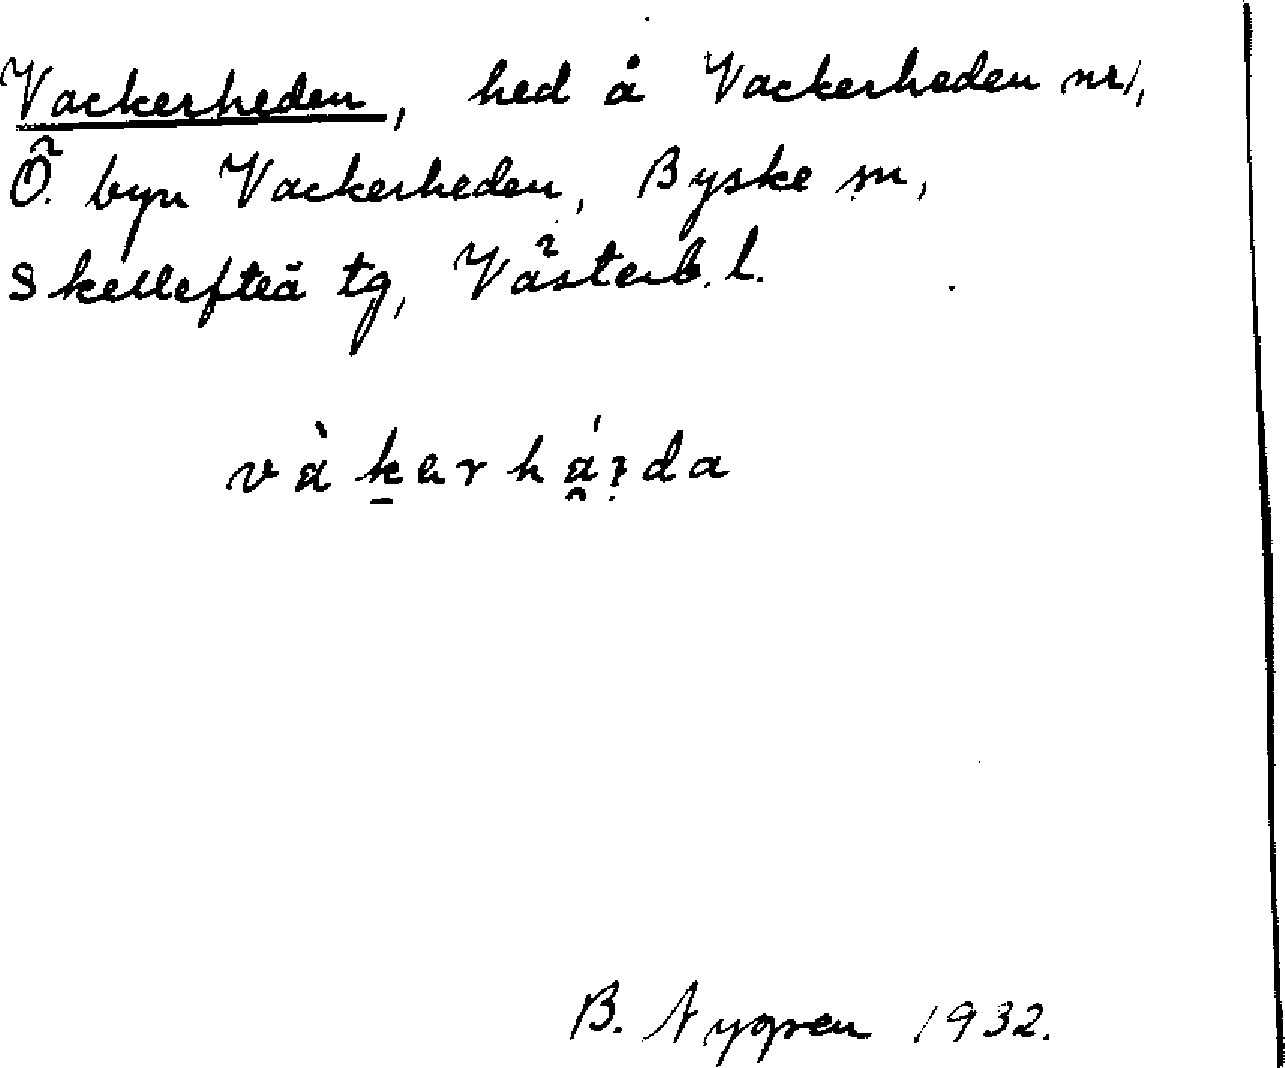 Vackerheden, hed å Vackerheden nr 1,
Ö. byn Vackerheden, Byske sn,
Skellefteå tg, Västerb. l.
B. Nygren 1932.